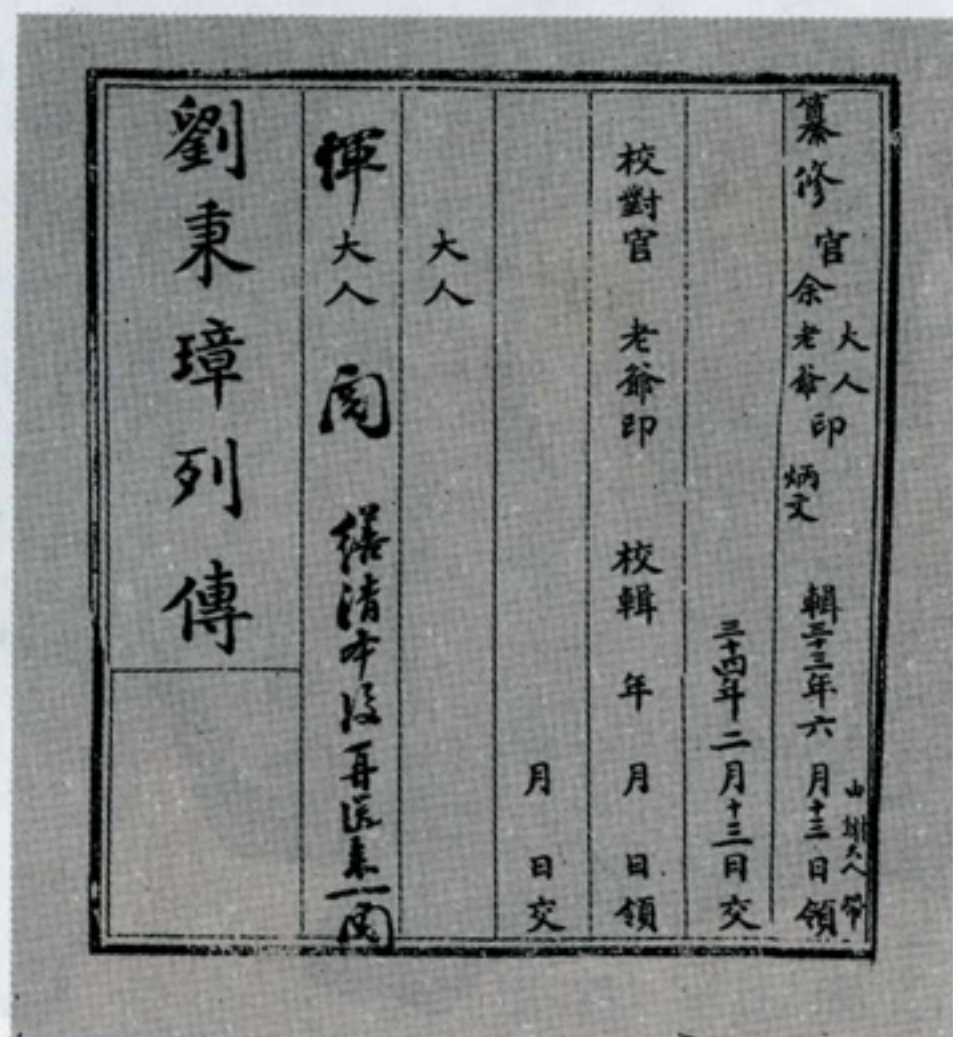 纂修官 大人 余老爺印 炳文 輯 三十三年六月十三日領
由謝大人帶
三十四年二月十三日交
校對官 老爺印 校輯 年 月 日領
月 日交
大人
惲大人閱 繕清本後再送來一閱
劉秉璋列傳